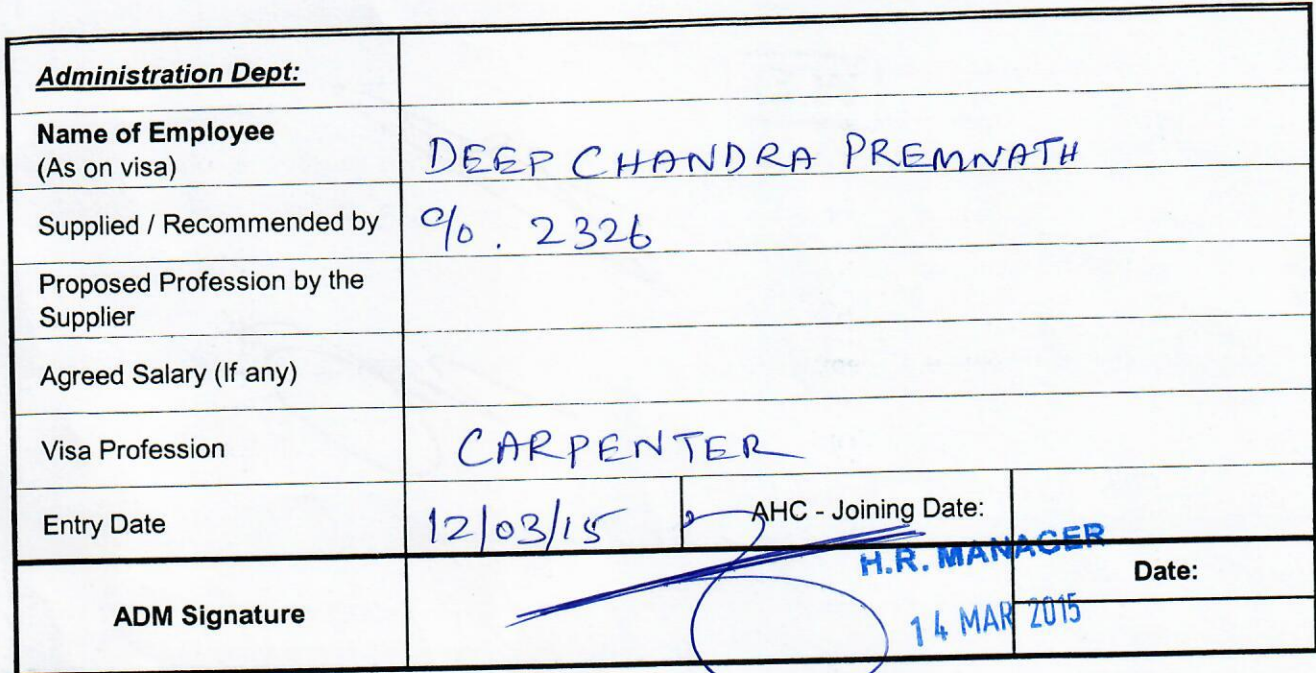 Administration Dept:
Name of Employee
(As on visa)
DEEP CHANDRA PREMNATH
Supplied / Recommended by
c/o. 2326
Proposed Profession by the
Supplier
Agreed Salary (If any)
Visa Profession
CARPENTER
Entry Date
12/03/15
AHC - Joining Date:
ADM Signature
H.R. MANAGER
14 MAR 2015
Date: